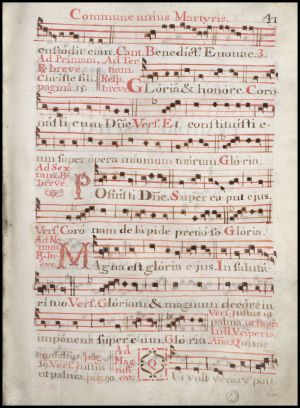 Commune unius Martyris. 41
custodit eam. Cant. Benedict9. Evovae. 3.
Ad Primam, Ad Ter
breve. nam.
Christe fili. Resp.
pagina 15. breve. Gloria & honore. Coro
nasti eum Dñe. Vers. Et constituisti e
um super opera manuum tuarum. Gloria.
Ad Sex
tam. R.
breve.
Posuisti Dñe. Super caput ejus.
Vers. Coro nam de lapide pretioso. Gloria.
Ad No
nam.
breve.
Magna est gloria ejus. In saluta
ri tuo. Vers. Gloriam & magnum decorem
Vers. Justus ut
palma.
In II Vesperis,
imponens super eum. Gloria. Ana. Qui me
confessus. pag. Ad
30. Vers. Justus Mag
ut palma. pag. nificat Qui vult venire post